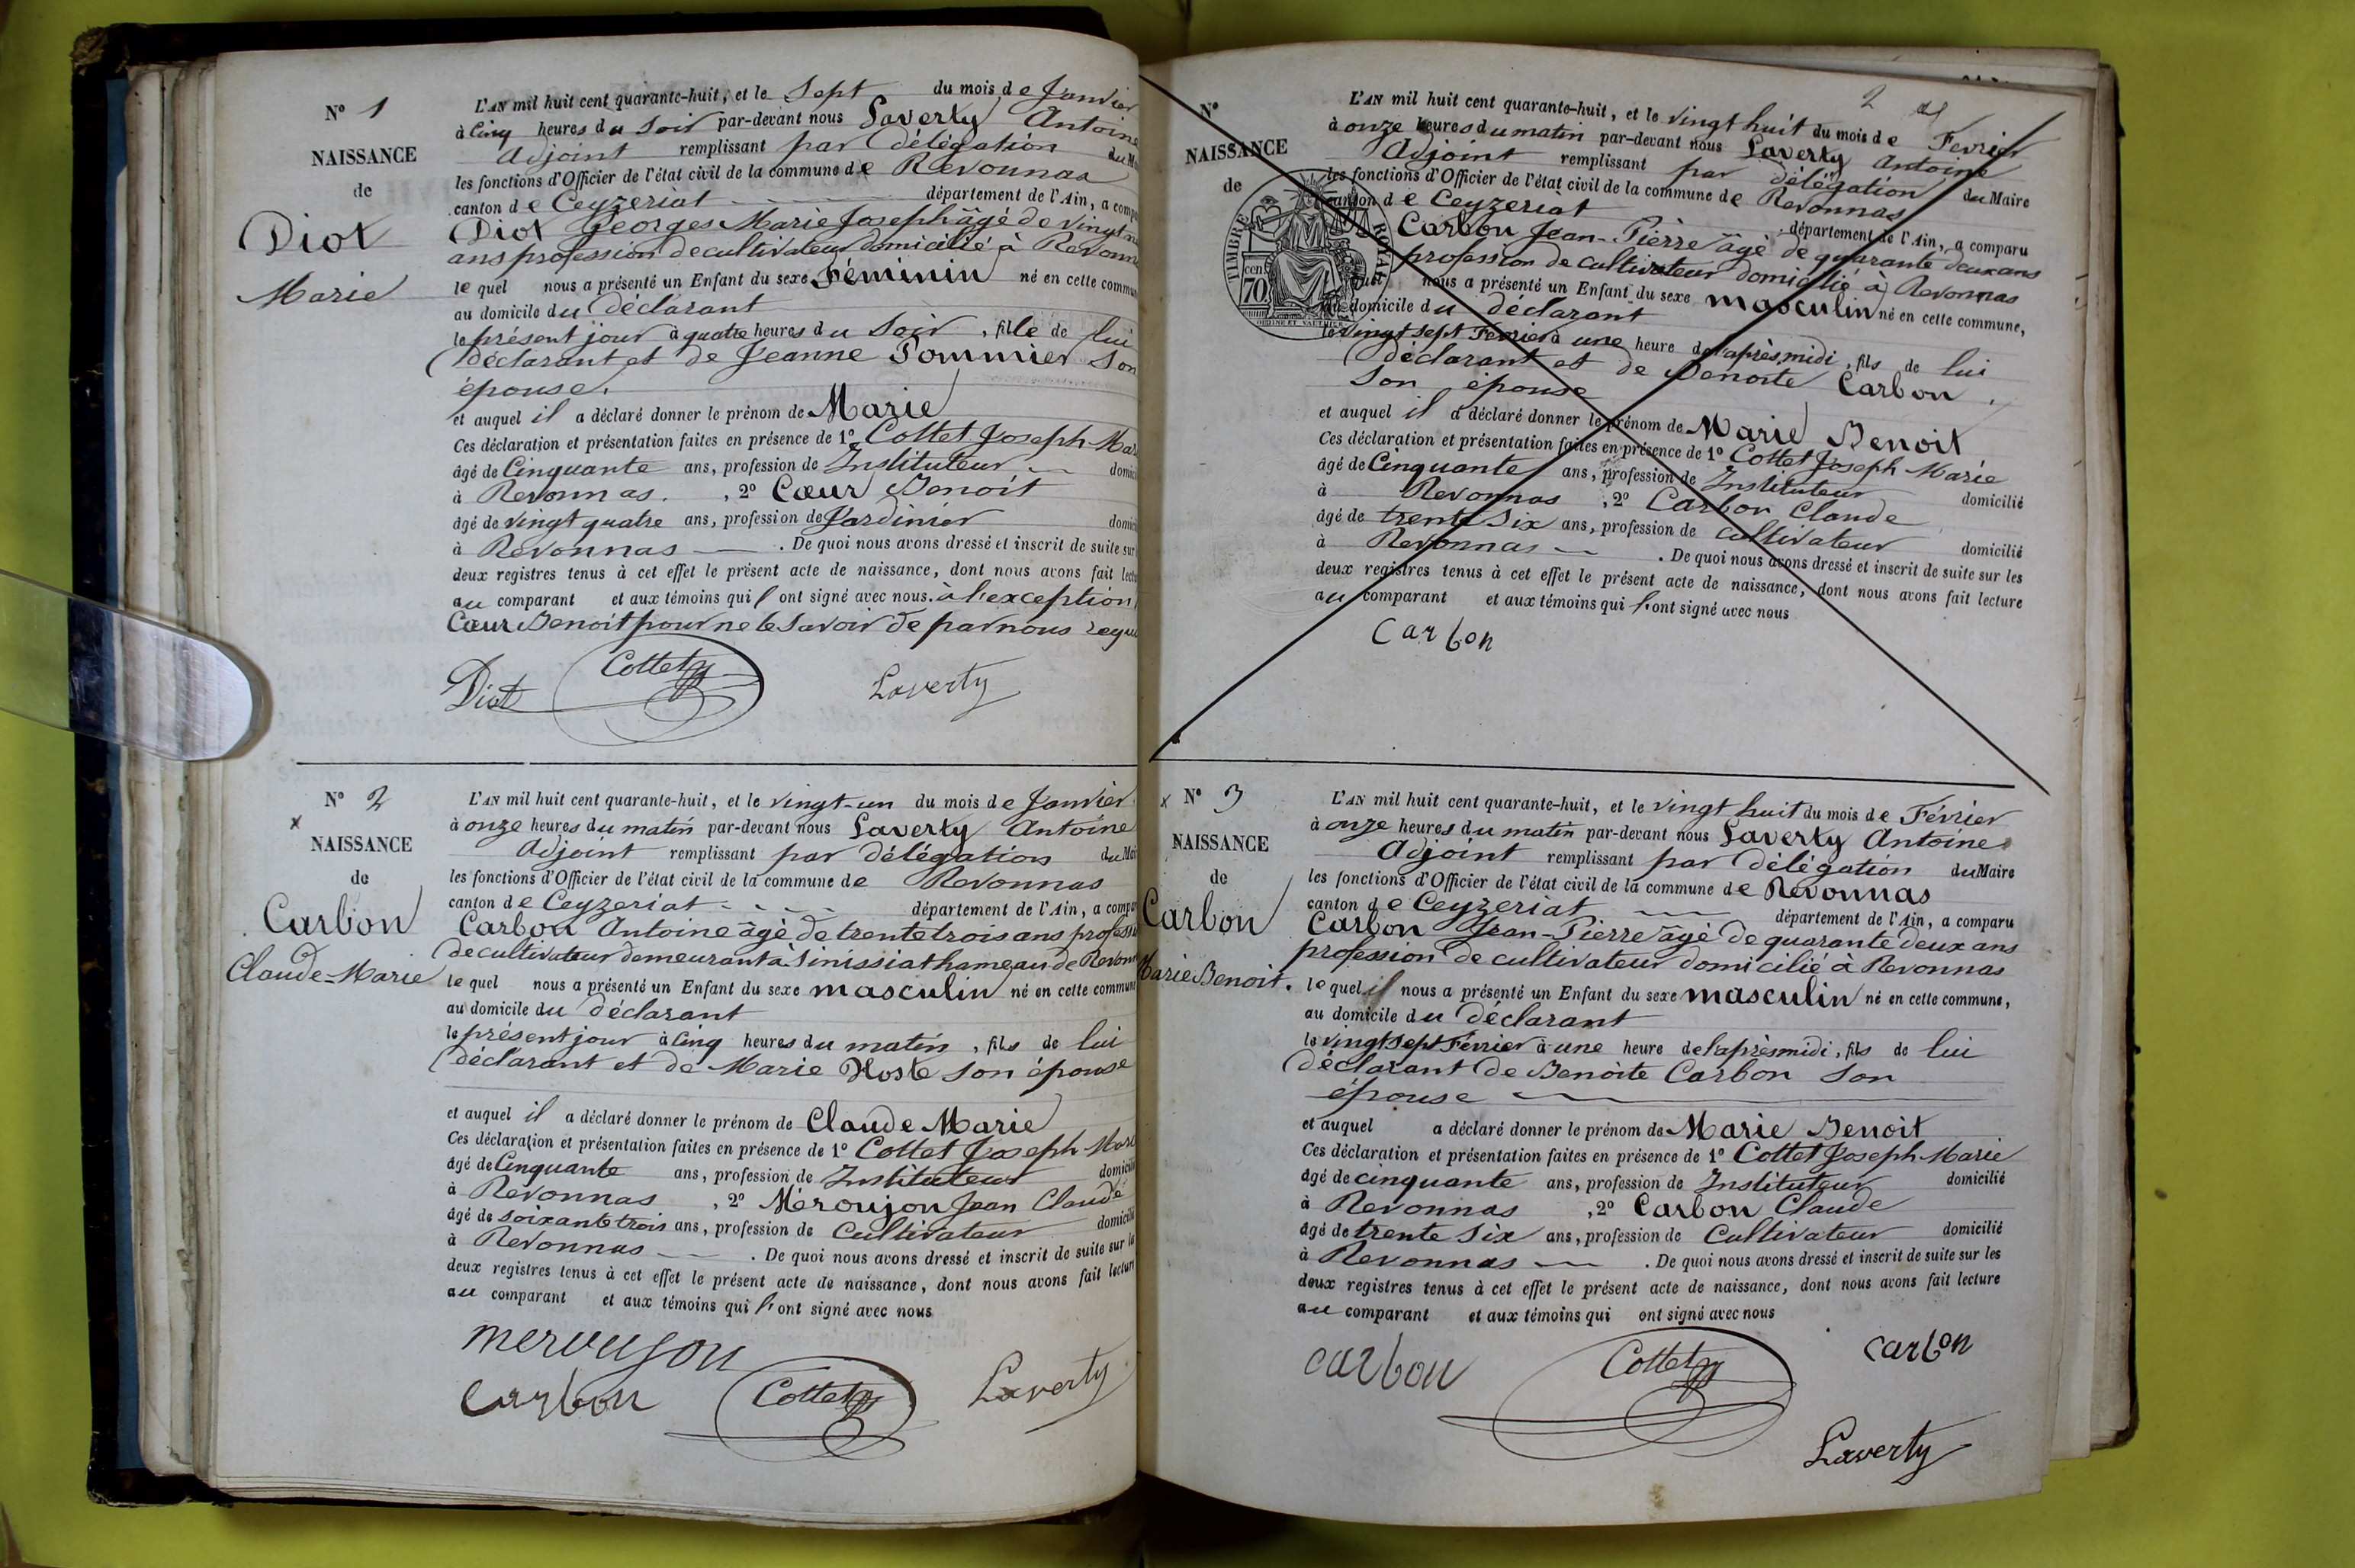 N° 1
NAISSANCE
de
Diot
Marie
L'AN mil huit cent quarante-huit, et le Sept du mois de Janvier
à Cinq heures du Soir par-devant nous Laverty Antoine
Adjoint remplissant par délégation du
les fonctions d'Officier de l'état civil de la commune de Revonnas
canton de Ceyzeriat département de l'Ain, a
Diot Georges Marie Joseph âgé de vingt
ans profession de cultivateur domicilié à
le quel nous a présenté un Enfant du sexe Féminin né en cette
au domicile du déclarant
le présent jour à quatre heures du Soir, fille de lui
déclarant et de Jeanne Pommier Son
épouse.
et auquel il a déclaré donner le prénom de Marie
Ces déclaration et présentation faites en présence de 1° Cottet Joseph
âgé de Cinquante ans, profession de Instituteur
à Revonnas. , 2° Cœur Benoit
âgé de vingt quatre ans, profession de Jardinier
à Revonnas . De quoi nous avons dressé et inscrit de suite sur
deux registres tenus à cet effet le présent acte de naissance, dont nous avons fait
au comparant et aux témoins qui l'ont signé avec nous. à l'exception
Cœur Benoit pour ne le Savoir de par nous
Diot Cottet Laverty
N° 2
x
NAISSANCE
de
Carbon
Claude-Marie
L'AN mil huit cent quarante-huit, et le vingt-un du mois de Janvier
à onze heures du matin par-devant nous Laverty Antoine
Adjoint remplissant par délégation du
les fonctions d'Officier de l'état civil de la commune de Revonnas
canton de Ceyzeriat département de l'Ain, a
Carbon Antoine âgé de trente trois ans
de cultivateur demeurant à Sinissiat hameau de
le quel nous a présenté un Enfant du sexe masculin né en cette commune
au domicile du déclarant
le présent jour à Cinq heures du matin, fils de lui
déclarant et de Marie Hoste son épouse
et auquel il a déclaré donner le prénom de Claude Marie
Ces déclaration et présentation faites en présence de 1° Cottet Joseph
âgé de Cinquante ans, profession de Instituteur
à Revonnas , 2° Méroujon Jean Claude
âgé de soixante trois ans, profession de Cultivateur
à Revonnas . De quoi nous avons dressé et inscrit de suite sur
deux registres tenus à cet effet le présent acte de naissance, dont nous avons fait
au comparant et aux témoins qui l'ont signé avec nous
Carbon Cottet Laverty
2
N°
NAISSANCE
de
TIMBRE ROYAL
70 cen
L'AN mil huit cent quarante-huit, et le vingt huit du mois de Fevrier
à onze heures du matin par-devant nous Laverty Antoine
Adjoint remplissant par délégation du Maire
les fonctions d'Officier de l'état civil de la commune de Revonnas
canton de Ceyzeriat département de l'Ain, a comparu
Carbon Jean-Pierre âgé de quarante deux ans
profession de cultivateur domicilié à Revonnas
nous a présenté un Enfant du sexe masculin né en cette commune,
au domicile du déclarant
le vingt sept Fevrier à une heure de l'après midi, fils de lui
déclarant et de Benoite Carbon
Son épouse
et auquel il a déclaré donner le prénom de Marie Benoit
Ces déclaration et présentation faites en présence de 1° Cottet Joseph Marie
âgé de Cinquante ans, profession de Instituteur domicilié
à Revonnas , 2° Carbon Claude
âgé de trente Six ans, profession de cultivateur domicilié
à Revonnas . De quoi nous avons dressé et inscrit de suite sur les
deux registres tenus à cet effet le présent acte de naissance, dont nous avons fait lecture
au comparant et aux témoins qui l'ont signé avec nous
Carbon
x N° 3
NAISSANCE
de
Carbon
Marie Benoit.
L'AN mil huit cent quarante-huit, et le vingt huit du mois de Février
à onze heures du matin par-devant nous Laverty Antoine
Adjoint remplissant par délégation du Maire
les fonctions d'Officier de l'état civil de la commune de Revonnas
canton de Ceyzeriat département de l'Ain, a comparu
Carbon Jean-Pierre âgé de quarante deux ans
profession de cultivateur domicilié à Revonnas
le quel il nous a présenté un Enfant du sexe masculin né en cette commune,
au domicile du déclarant
le vingt sept Février à une heure de l'après midi, fils de lui
déclarant de Benoite Carbon Son
épouse
et auquel a déclaré donner le prénom de Marie Benoit
Ces déclaration et présentation faites en présence de 1° Cottet Joseph-Marie
âgé de cinquante ans, profession de Instituteur domicilié
à Revonnas , 2° Carbon Claude
âgé de trente Six ans, profession de Cultivateur domicilié
à Revonnas . De quoi nous avons dressé et inscrit de suite sur les
deux registres tenus à cet effet le présent acte de naissance, dont nous avons fait lecture
au comparant et aux témoins qui ont signé avec nous
carbon Cottet carbon
Laverty